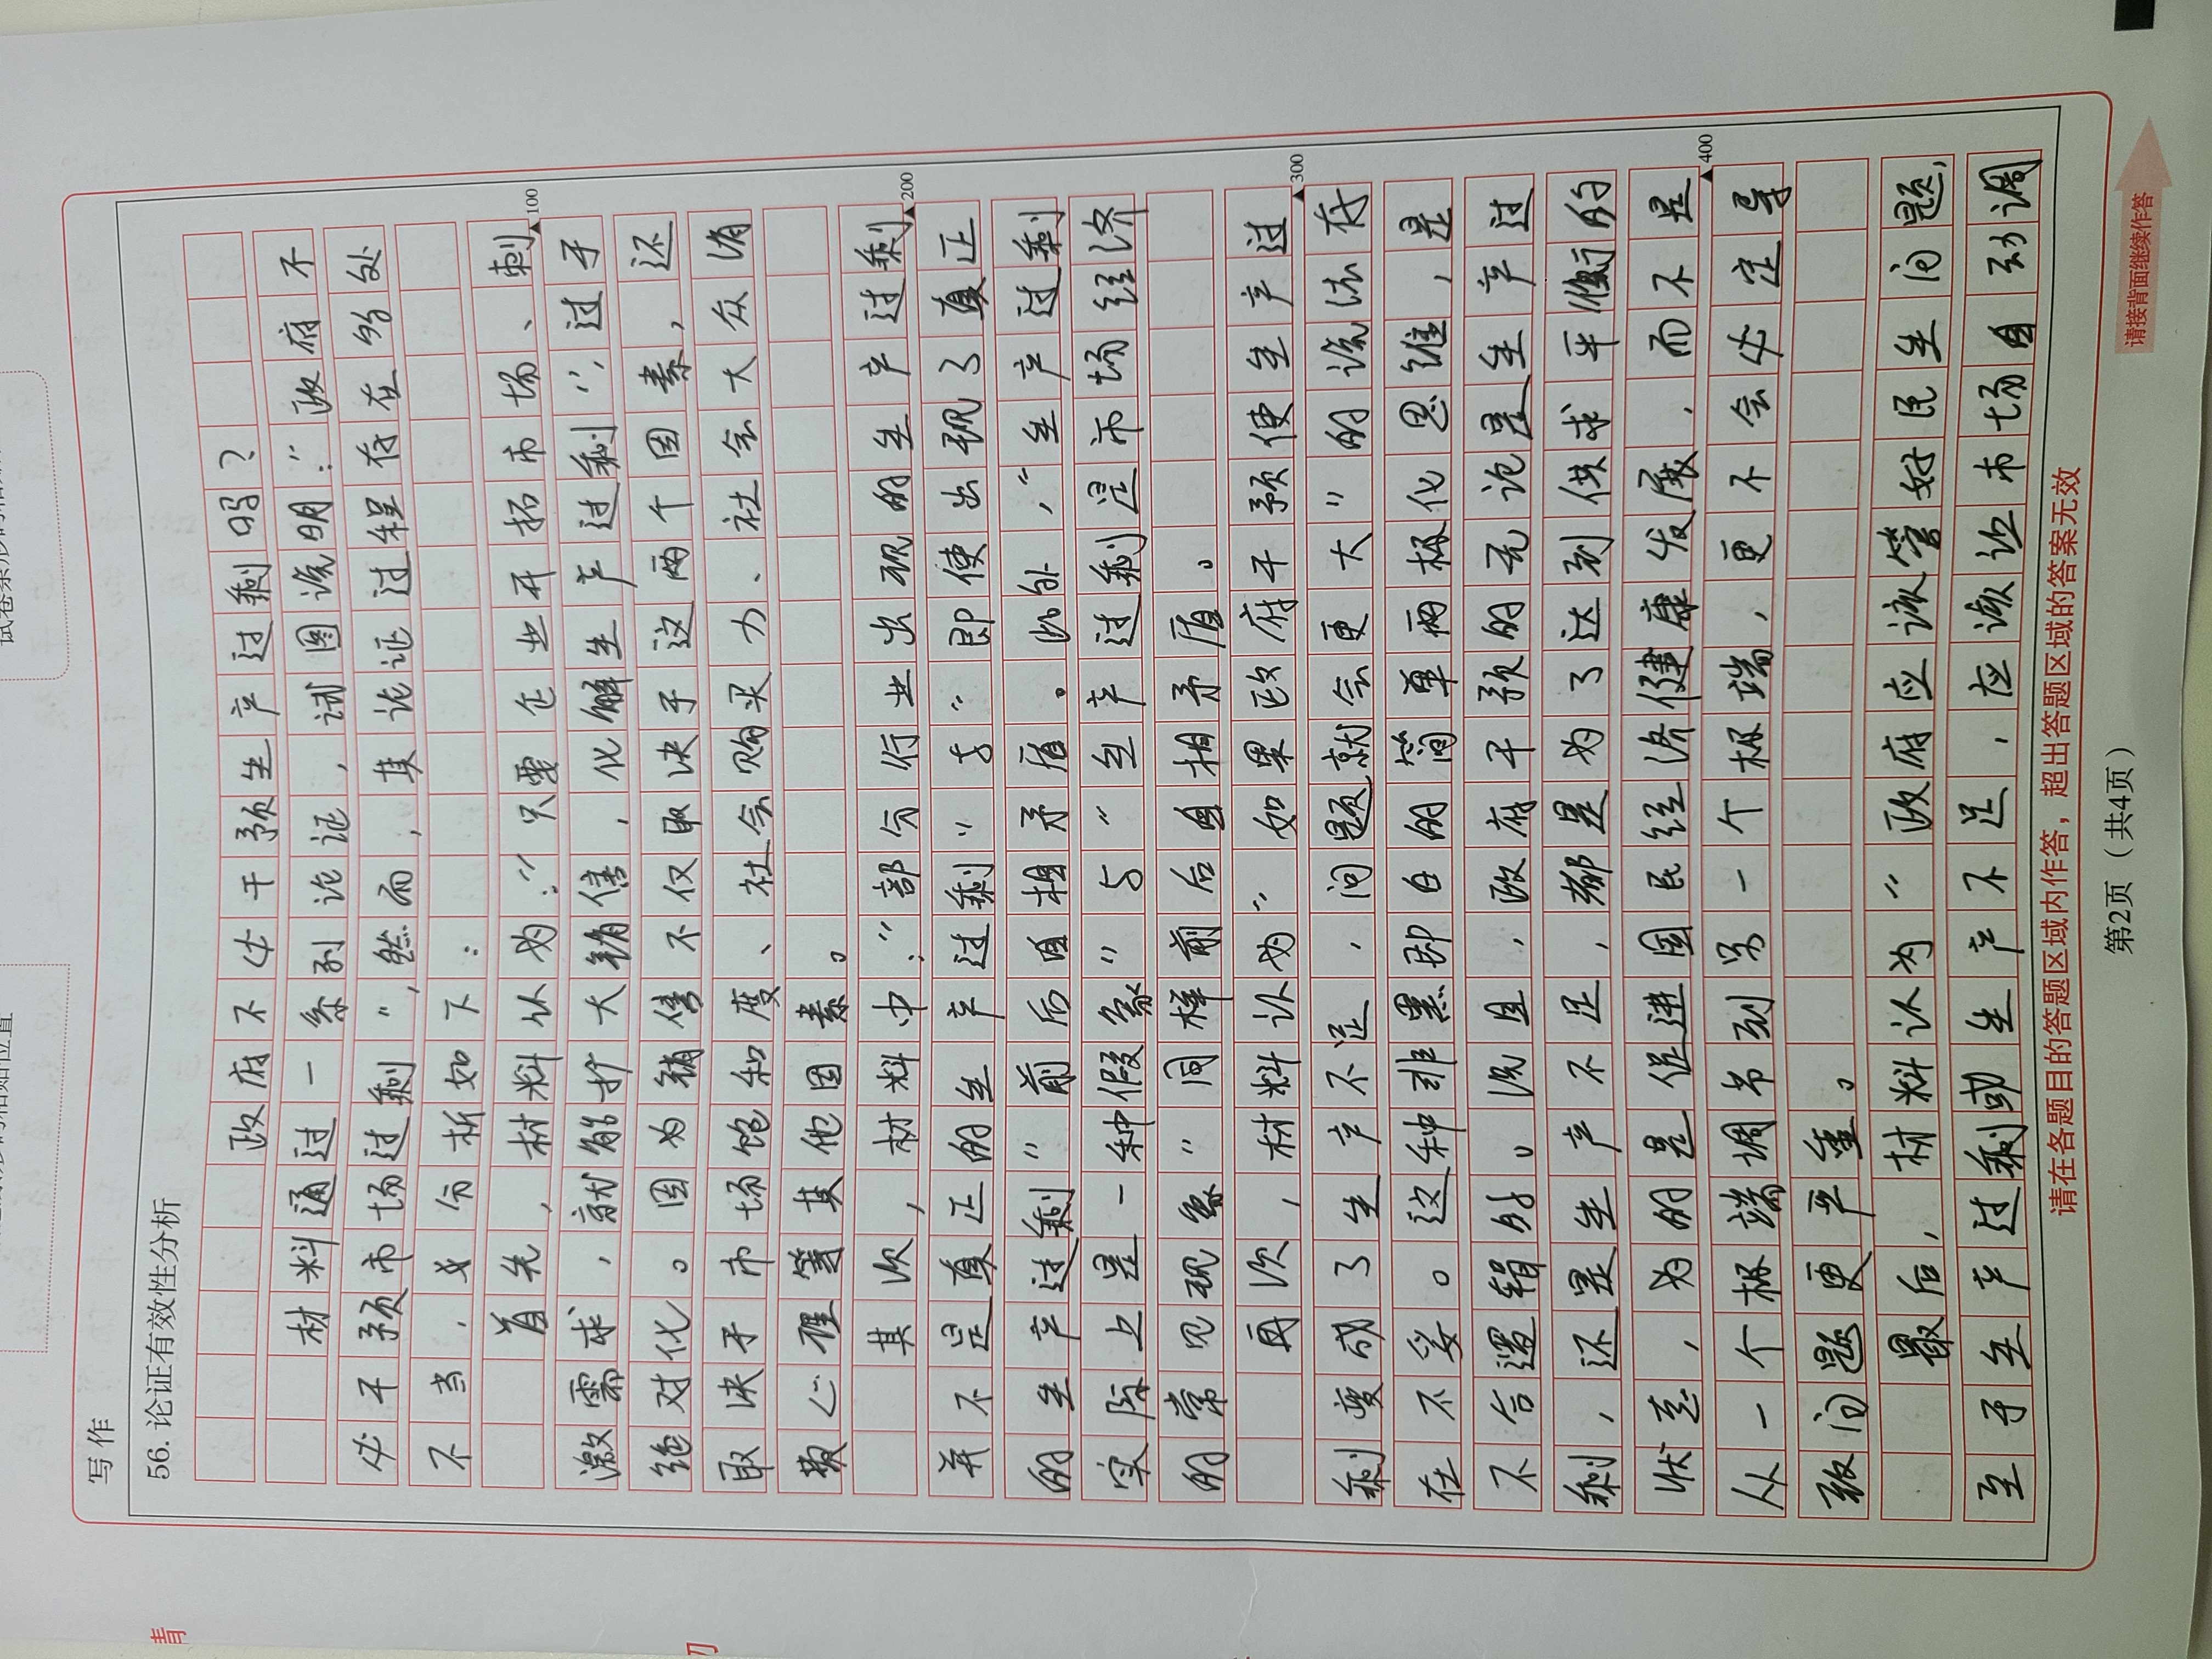 写作
56. 论证有效性分析
政府不必干预生产过剩吗？
材料通过一系列论证，试图说明：“政府不
必干预市场过剩”，然而，其论证过程存在多处
不当，现分析如下：
首先，材料认为：“只要企业开拓市场、刺
激需求，就能扩大销售，化解生产过剩”，过于
绝对化。因为销售不仅取决于这两个因素，还
取决于市场饱和度、社会购买力、社会大众消
费心理等其他因素。
其次，材料中：“部分行业出现的生产过剩
并不是真正的生产过剩”与“即使出现了真正
的生产过剩”前后自相矛盾。此外，“生产过剩
实际上是一种假象”与“生产过剩是市场经济
的常见现象”同样前后自相矛盾。
再次，材料认为“如果政府干预使生产过
剩变成了生产不足，问题就会更大”的说法存
在不妥。这种非黑即白的简单两极化思维，是
不合逻辑的。况且，政府干预的无论是生产过
剩，还是生产不足，都是为了达到供求平衡的
状态，为的是促进国民经济健康发展，而不是
从一个极端调节到另一个极端，更不会必定导
致问题更严重。
最后，材料认为“政府应该管好民生问题，
至于生产过剩或生产不足，应该让市场自动调
100
200
300
400
请在各题目的答题区域内作答，超出答题区域的答案无效
第2页（共4页）
请接背面继续作答